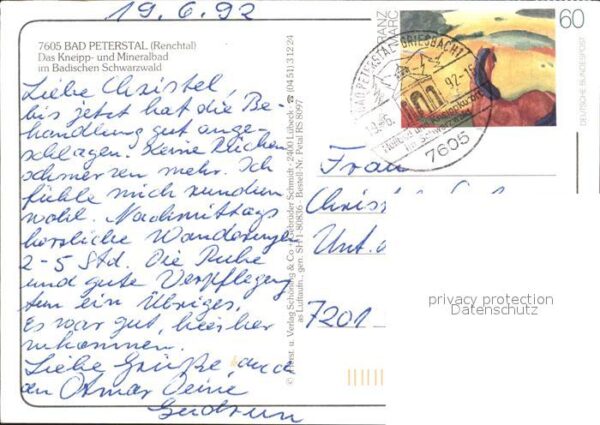 19.6.92
7605 BAD PETERSTAL (Renchtal)
Das Kneipp- und Mineralbad
im Badischen Schwarzwald
Liebe Christel,
bis jetzt hat die Be-
handlung gut ange-
schlagen. Keine Rücken
schmerzen mehr. Ich
fühle mich rundum
wohl. Nachmittags
herrliche Wanderungen
2-5 Std. Die Ruhe
und gute Verpflegung
tun ein Übriges.
Es war gut, hierher
zukommen.
Liebe Grüße, auch
an Otmar Deine
Gudrun
Verlag Schöning & Co + Gebrüder Schmidt · 2400 Lübeck · ☎ (0451) 31224
as Luftaufn., gen. SH 1-80836 · Bestell-Nr. Petal RS 8097
FRANZ
MARC
60
DEUTSCHE BUNDESPOST
BAD PETERSTAL-GRIESBACH 1
7605
Frau
Unt.
7201
privacy protection
Datenschutz